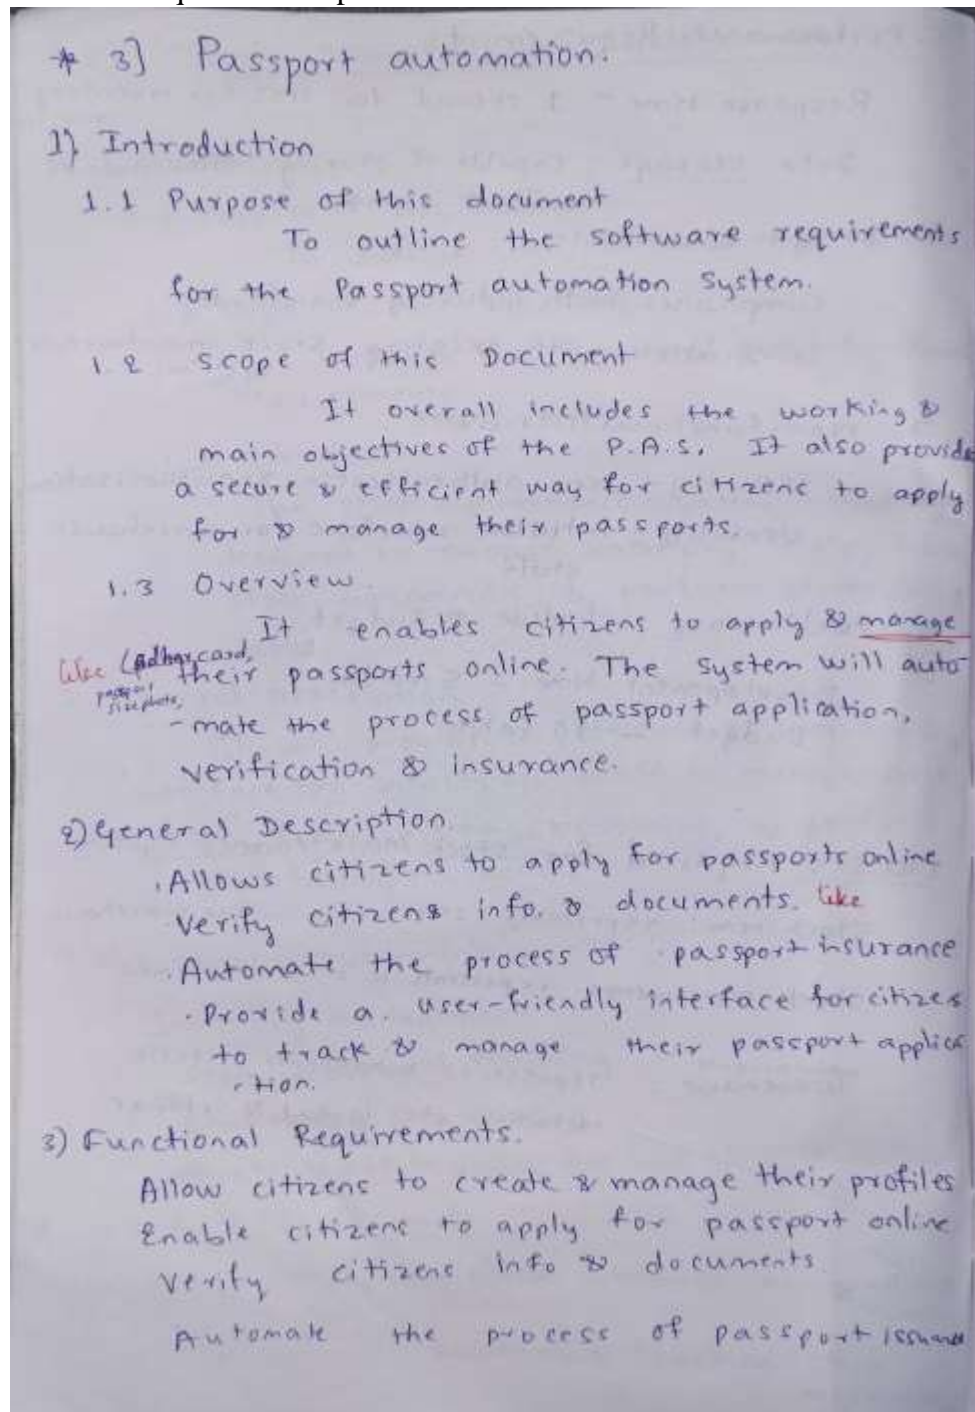 * 3] Passport automation.
1} Introduction
1.1 Purpose of this document
To outline the software requirements
for the Passport automation system.
1.2 Scope of this Document
It overall includes the working &
main objectives of the P.A.S. It also provide
a secure & efficient way for citizens to apply
for & manage their passports.
1.3 Overview.
It enables citizens to apply & manage
like (Adhar card, their passports online. The system will auto-
size photo,
-mate the process of passport application,
verification & insurance.
2) General Description.
. Allows citizens to apply for passports online
Verify citizens info. & documents. like
. Automate the process of passport insurance
. Provide a user-friendly interface for citizes
to track & manage their passport applica
-tion.
3) Functional Requirements.
Allow citizens to create & manage their profiles
Enable citizens to apply for passport online
Verify citizens info & documents
Automate the process of passport issuance